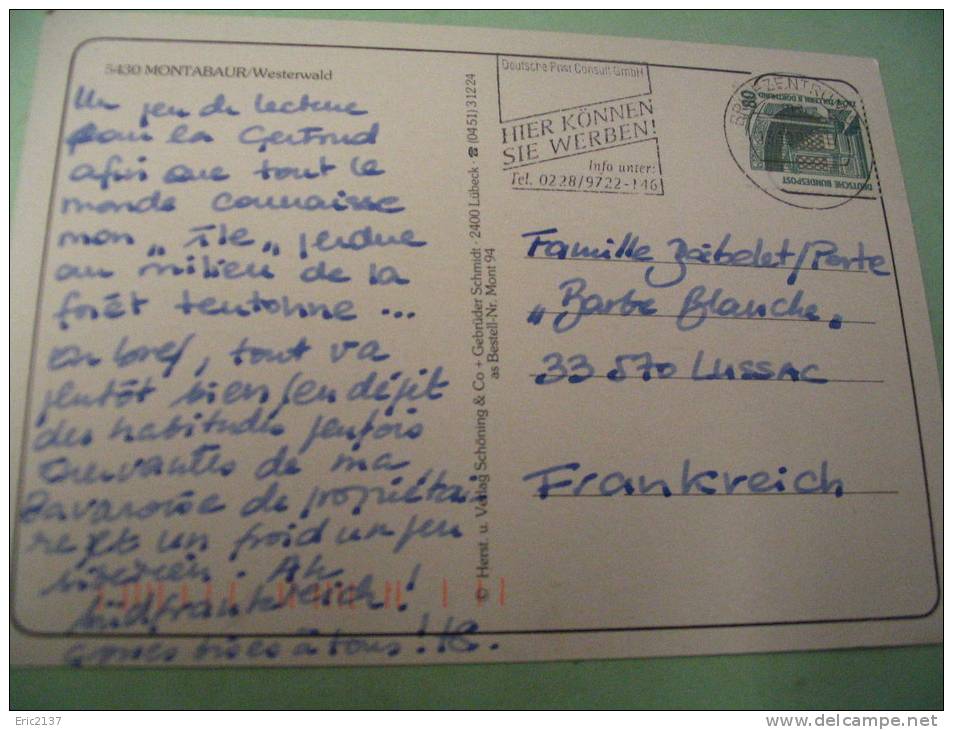 5430 MONTABAUR/Westerwald
Un peu de lecture
pour la Gertrud
afin que tout le
monde connaisse
mon „ île „ perdue
au milieu de la
forêt teutonne ...
en bref, tout va
plutôt bien (en dépit
des habitudes parfois
énervantes de ma
bavaroise de propriétai-
re et un froid un peu
sibérien. Ah
Südfrankreich!
grosses bises à tous!
© Herst. u. Verlag Schöning & Co + Gebrüder Schmidt · 2400 Lübeck · ☎ (0451) 31224
as Bestell-Nr. Mont 94
Deutsche Post Consult GmbH
HIER KÖNNEN
SIE WERBEN!
Info unter:
Tel. 0228/9722-146
BRIEFZENTRUM
80
DEUTSCHE BUNDESPOST
Famille /Porte
„Barbe Blanche„
33 570 LUSSAC
Frankreich
Eric2137
http://www.delcampe.net